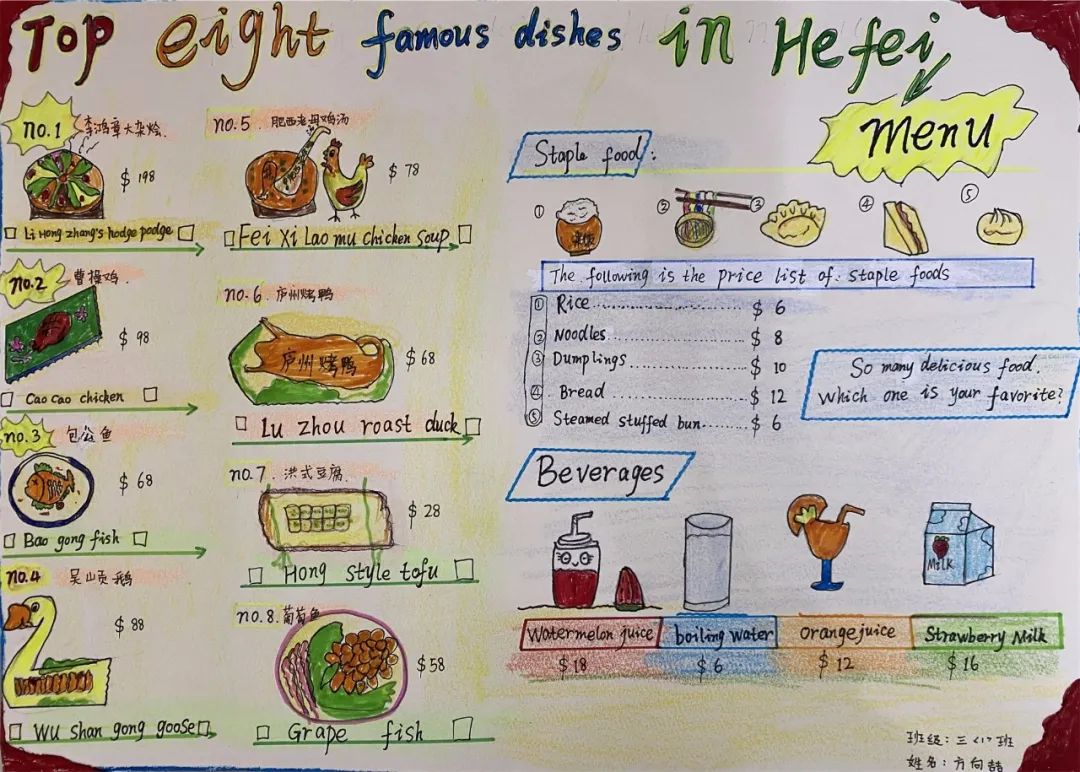 Top eight famous dishes in Hefei
Menu
no.1 李鸿章大杂烩
$ 198
Li Hong zhang's hodge podge
no.2 曹操鸡
$ 98
Cao Cao chicken
no.3 包公鱼
$ 68
Bao gong fish
no.4 吴山贡鹅
$ 88
Wu shan gong goose
no.5. 肥西老母鸡汤
$ 78
Fei Xi Lao mu chicken soup
no.6. 庐州烤鸭
庐州烤鸭
$ 68
Lu zhou roast duck
no.7. 洪式豆腐
$ 28
Hong style tofu
no.8. 葡萄鱼
$58
Grape fish
Staple food:
① ② ③ ④ ⑤
米饭
The following is the price list of staple foods
① Rice $ 6
② Noodles $ 8
③ Dumplings $ 10
④ Bread $ 12
⑤ Steamed stuffed bun $ 6
So many delicious food.
Which one is your favorite?
Beverages
Milk
Watermelon juice boiling water orange juice Strawberry Milk
$ 18 $ 6 $ 12 $ 16
班级：三〈1〉班
姓名：方向喆